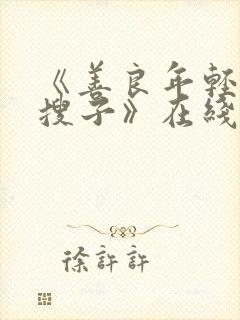 《善良年轻
搜子》在线
徐許許